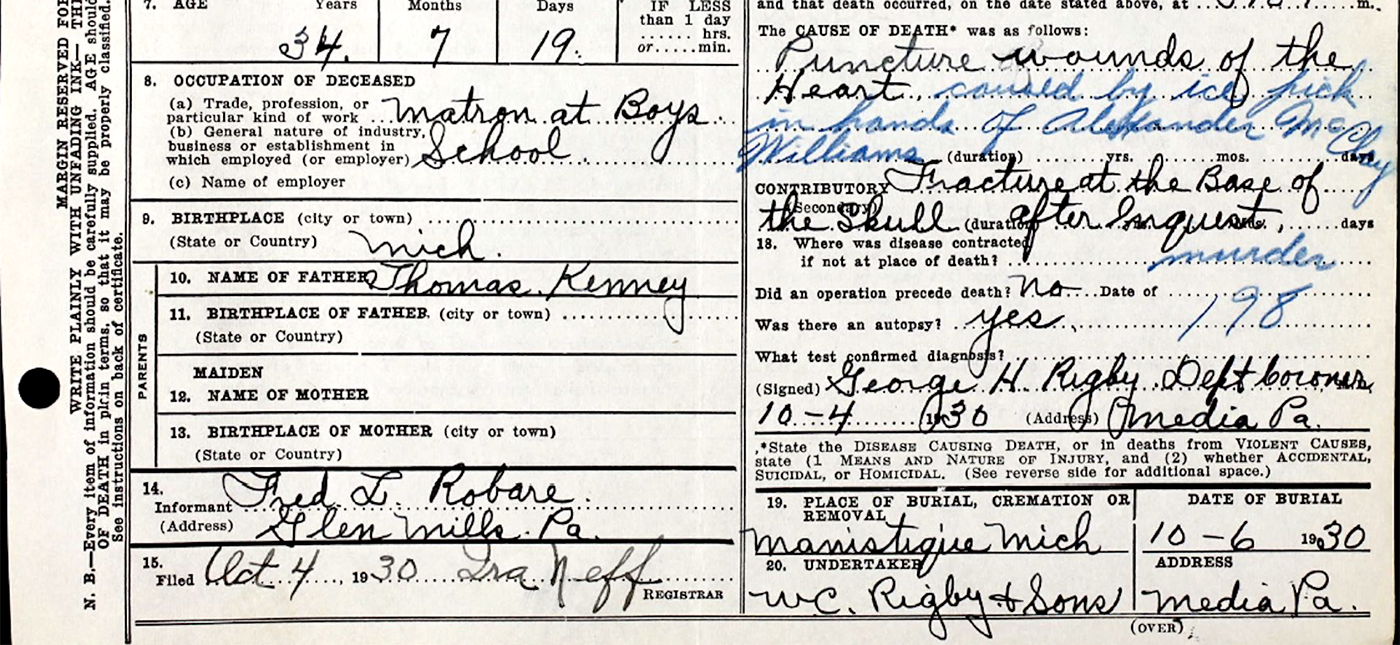 MARGIN RESERVED FOR
WRITE PLAINLY WITH UNFADING INK— THI
N. B.—Every item of information should be carefully supplied. AGE shoul
OF DEATH in plain terms, so that it may be properly classified.
See instructions on back of certificate.
7. AGE Years Months Days IF LESS
than 1 day
hrs.
34. 7 19. or......min.
8. OCCUPATION OF DECEASED
(a) Trade, profession, or
particular kind of work Matron at Boys
(b) General nature of industry,
business or establishment in
which employed (or employer) School
(c) Name of employer
9. BIRTHPLACE (city or town)
(State or Country) Mich.
PARENTS
10. NAME OF FATHER Thomas Kenney
11. BIRTHPLACE OF FATHER (city or town)
(State or Country)
MAIDEN
12. NAME OF MOTHER
13. BIRTHPLACE OF MOTHER (city or town)
(State or Country)
14.
Informant Fred L. Robare.
(Address) Glen Mills. Pa.
15.
Filed Oct 4, 1930 Ira Neff
REGISTRAR
and that death occurred, on the date stated above, at m.
The CAUSE OF DEATH* was as follows:
Puncture wounds of the
Heart caused by ice pick
in hands of Alexander McClay
Williams (duration) yrs. mos. days
CONTRIBUTORY Fracture at the Base of
Secondary
the Skull (duration) after Inquest, days
18. Where was disease contracted
if not at place of death? murder
Did an operation precede death? No Date of
Was there an autopsy? yes 198
What test confirmed diagnosis?
(Signed) George H Rigby Dept Coroner
10-4 1930 (Address) Media Pa.
*State the DISEASE CAUSING DEATH, or in deaths from VIOLENT CAUSES,
state (1 MEANS AND NATURE OF INJURY, and (2) whether ACCIDENTAL,
SUICIDAL, or HOMICIDAL. (See reverse side for additional space.)
19. PLACE OF BURIAL, CREMATION OR
REMOVAL
Manistique Mich
DATE OF BURIAL
10-6 1930
20. UNDERTAKER
W.C. Rigby & Sons
ADDRESS
Media Pa.
(OVER)